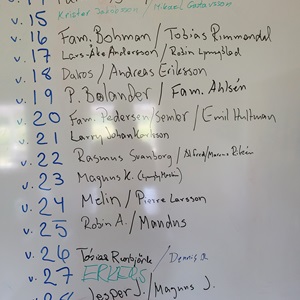 v. 15 Krister Danielsson / Mikael Gustavsson
v. 16 Fam. Bohman / Tobias Rimmendal
v. 17 Lars-Åke Andersson / Robin Ljungblad
v. 18 Dakos / Andreas Eriksson
v. 19 P. Bolander / Fam. Ahlsén
v. 20 Fam. Pedersen/Semler / Emil Hultman
v. 21 Larry Johan Karlsson
v. 22 Rasmus Svanborg /
v. 23 Magnus K.
v. 24 Melin / Pierre Larsson
v. 25 Robin A. / Mandus
v. 26 Tobias
v. 27 ERKERS / Dennis
Jesper J. / Magnus J.